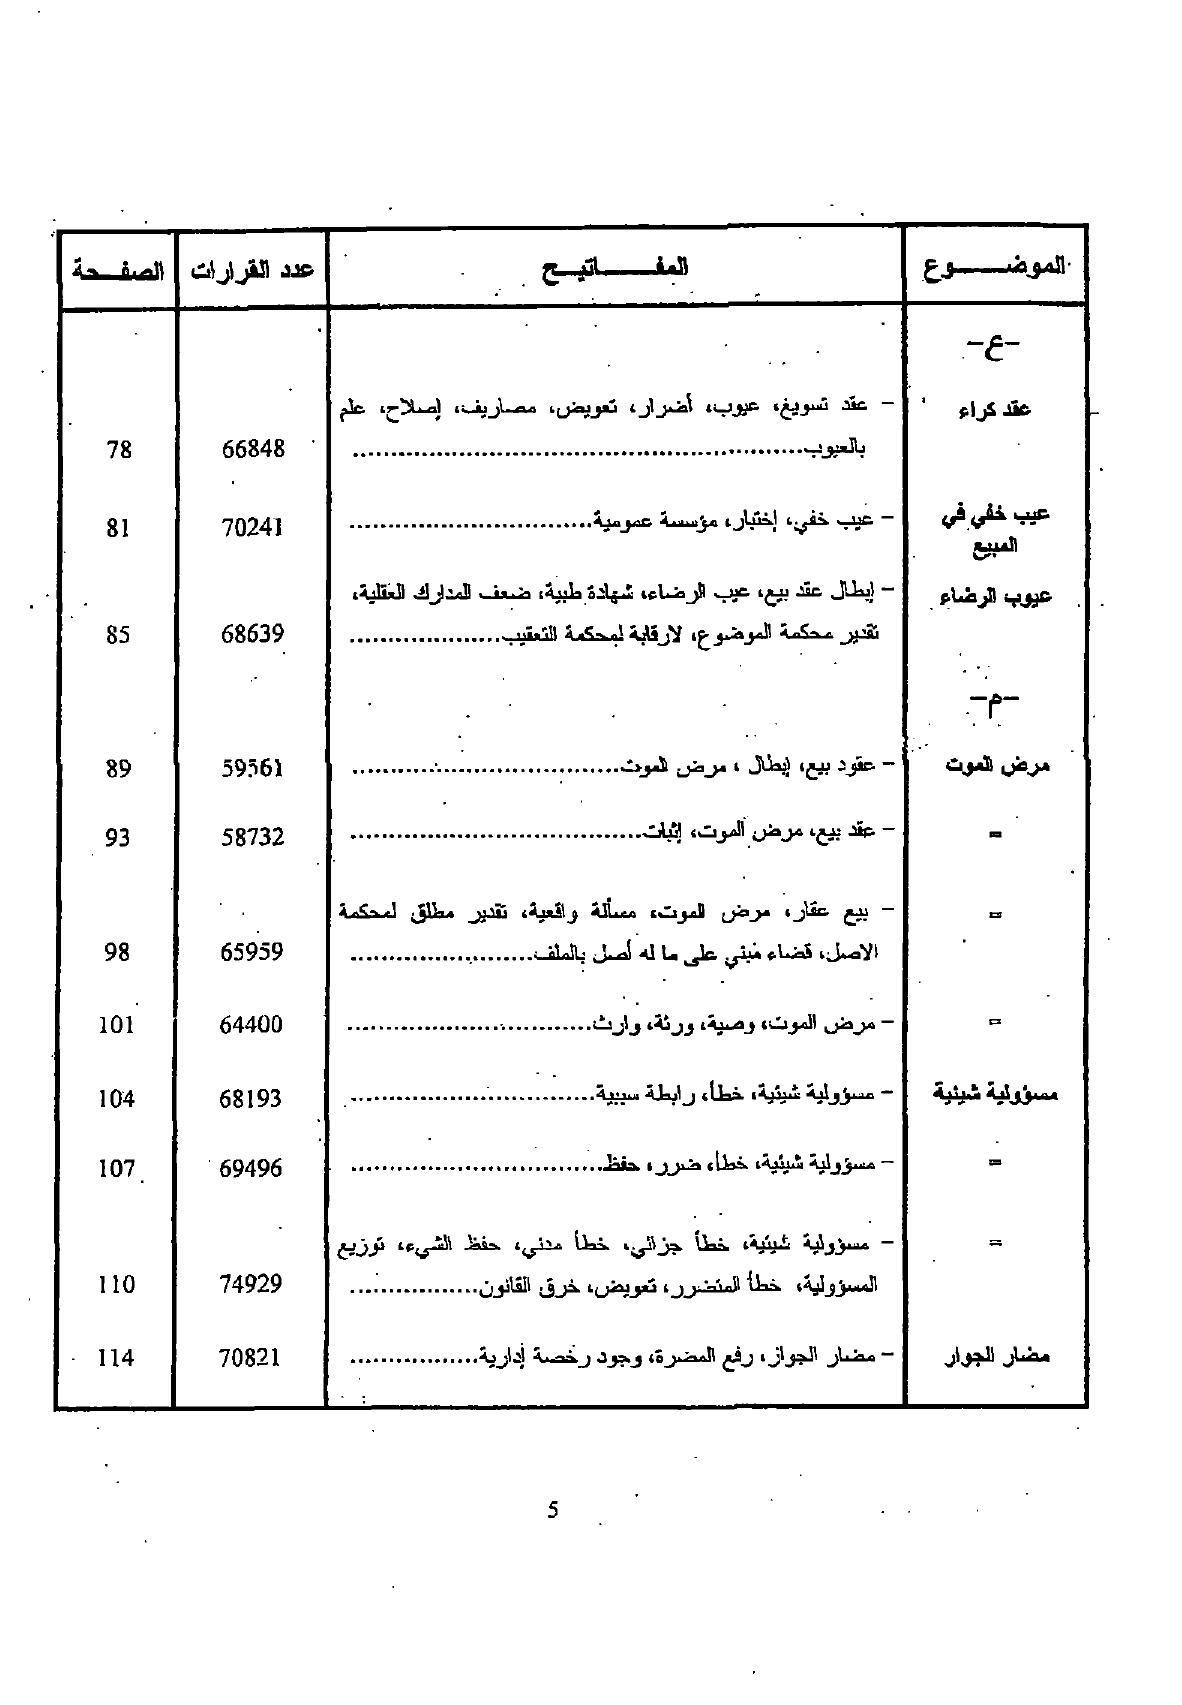 الموضــــوع المفــــاتيــح عدد القرارات الصفـحة
-ع-
عقد كراء - عقد تسويغ، عيوب، أضرار، تعويض، مصاريف، إصلاح، علم
بالعيوب.................................................... 66848 78
عيب خفي في - عيب خفي، إختبار، مؤسسة عمومية............................... 70241 81
المبيع
عيوب الرضاء - إبطال عقد بيع، عيب الرضاء، شهادة طبية، ضعف المدارك العقلية،
تقدير محكمة الموضوع، لارقابة لمحكمة التعقيب................... 68639 85
-م-
مرض الموت - عقود بيع، إبطال ، مرض الموت.................................. 59561 89
= - عقد بيع، مرض الموت، إثبات.................................... 58732 93
= - بيع عقار، مرض الموت، مسألة واقعية، تقدير مطلق لمحكمة
الاصل، قضاء مبني على ما له أصل بالملف....................... 65959 98
= - مرض الموت، وصية، ورثة، وارث............................... 64400 101
مسؤولية شيئية - مسؤولية شيئية، خطأ، رابطة سببية............................... 68193 104
= - مسؤولية شيئية، خطأ، ضرر، حفظ................................ 69496 107
= - مسؤولية شيئية، خطأ جزائي، خطأ مدني، حفظ الشيء، توزيع
المسؤولية، خطأ المتضرر، تعويض، خرق القانون................. 74929 110
مضار الجوار - مضار الجوار، رفع المضرة، وجود رخصة إدارية................. 70821 114
5